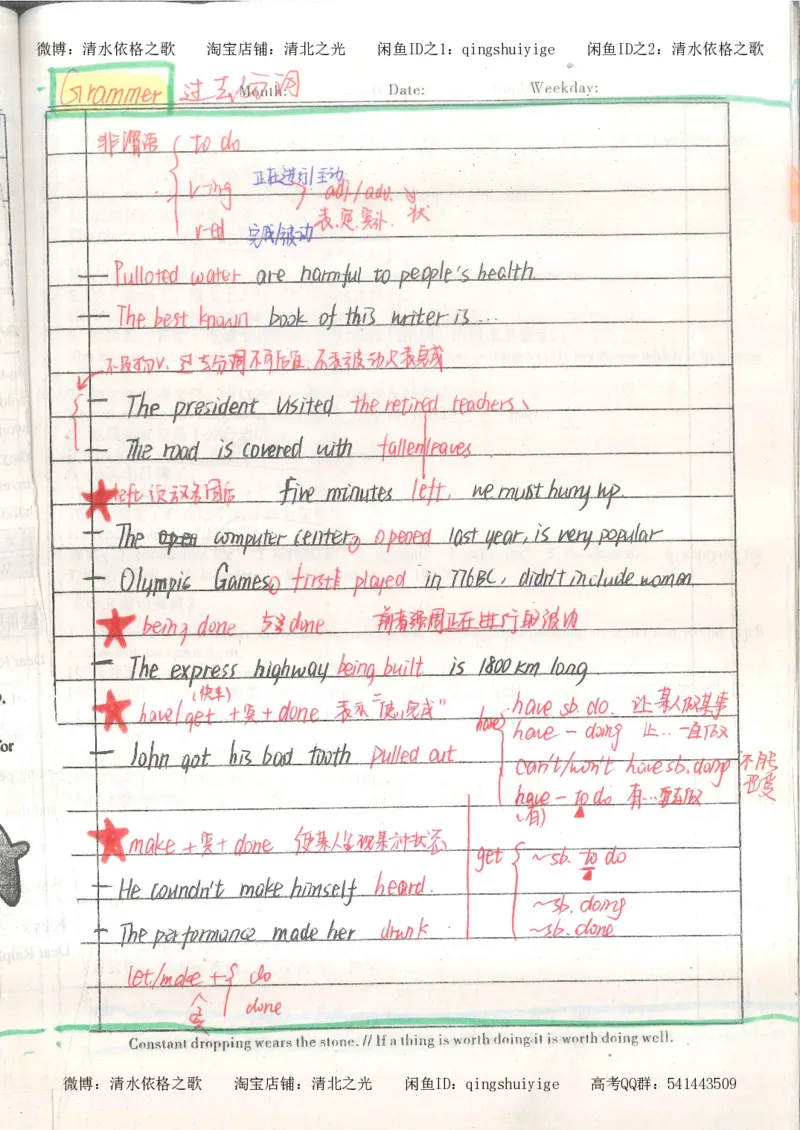 微博：清水依格之歌 淘宝店铺：清北之光 闲鱼ID之1：qingshuiyige 闲鱼ID之2：清水依格之歌
Grammer 过去分词 Month: Date: Weekday:
非谓语 to do
v-ing 正在进行/主动 adj/adv.
表.定.宾补. 状
v-ed 完成/被动
— Pulloted water are harmful to people's health.
— The best known book of this writer is...
不及物v. 过去分词不可后置,不表被动只表完成
— The president visited the retired teachers、
— The road is covered with fallen leaves
★ left 放在名词后 Five minutes left, we must hurry up.
— The computer center, opened last year, is very popular
— Olympic Games, first played in 776BC, didn't include woman.
★ being done 与 done 前者强调正在进行的被动
— The express highway being built is 1800 km long
(快车)
★ have/get +宾+ done 表示"使完成"
have have sb. do. 让某人做某事
have - doing 让...一直做
— John got his bad tooth pulled out
can't/won't have sb. doing 不能忍受
have - to do 有...要去做
(有)
★ make +宾+ done 使某人出现某种状态
get ~sb. to do
— He coundn't make himself heard.
~sb. doing
— The performance made her drunk.
~sb. done
let/make + do
宾 done
Constant dropping wears the stone. // If a thing is worth doing it is worth doing well.
微博：清水依格之歌 淘宝店铺：清北之光 闲鱼ID：qingshuiyige 高考QQ群：541443509